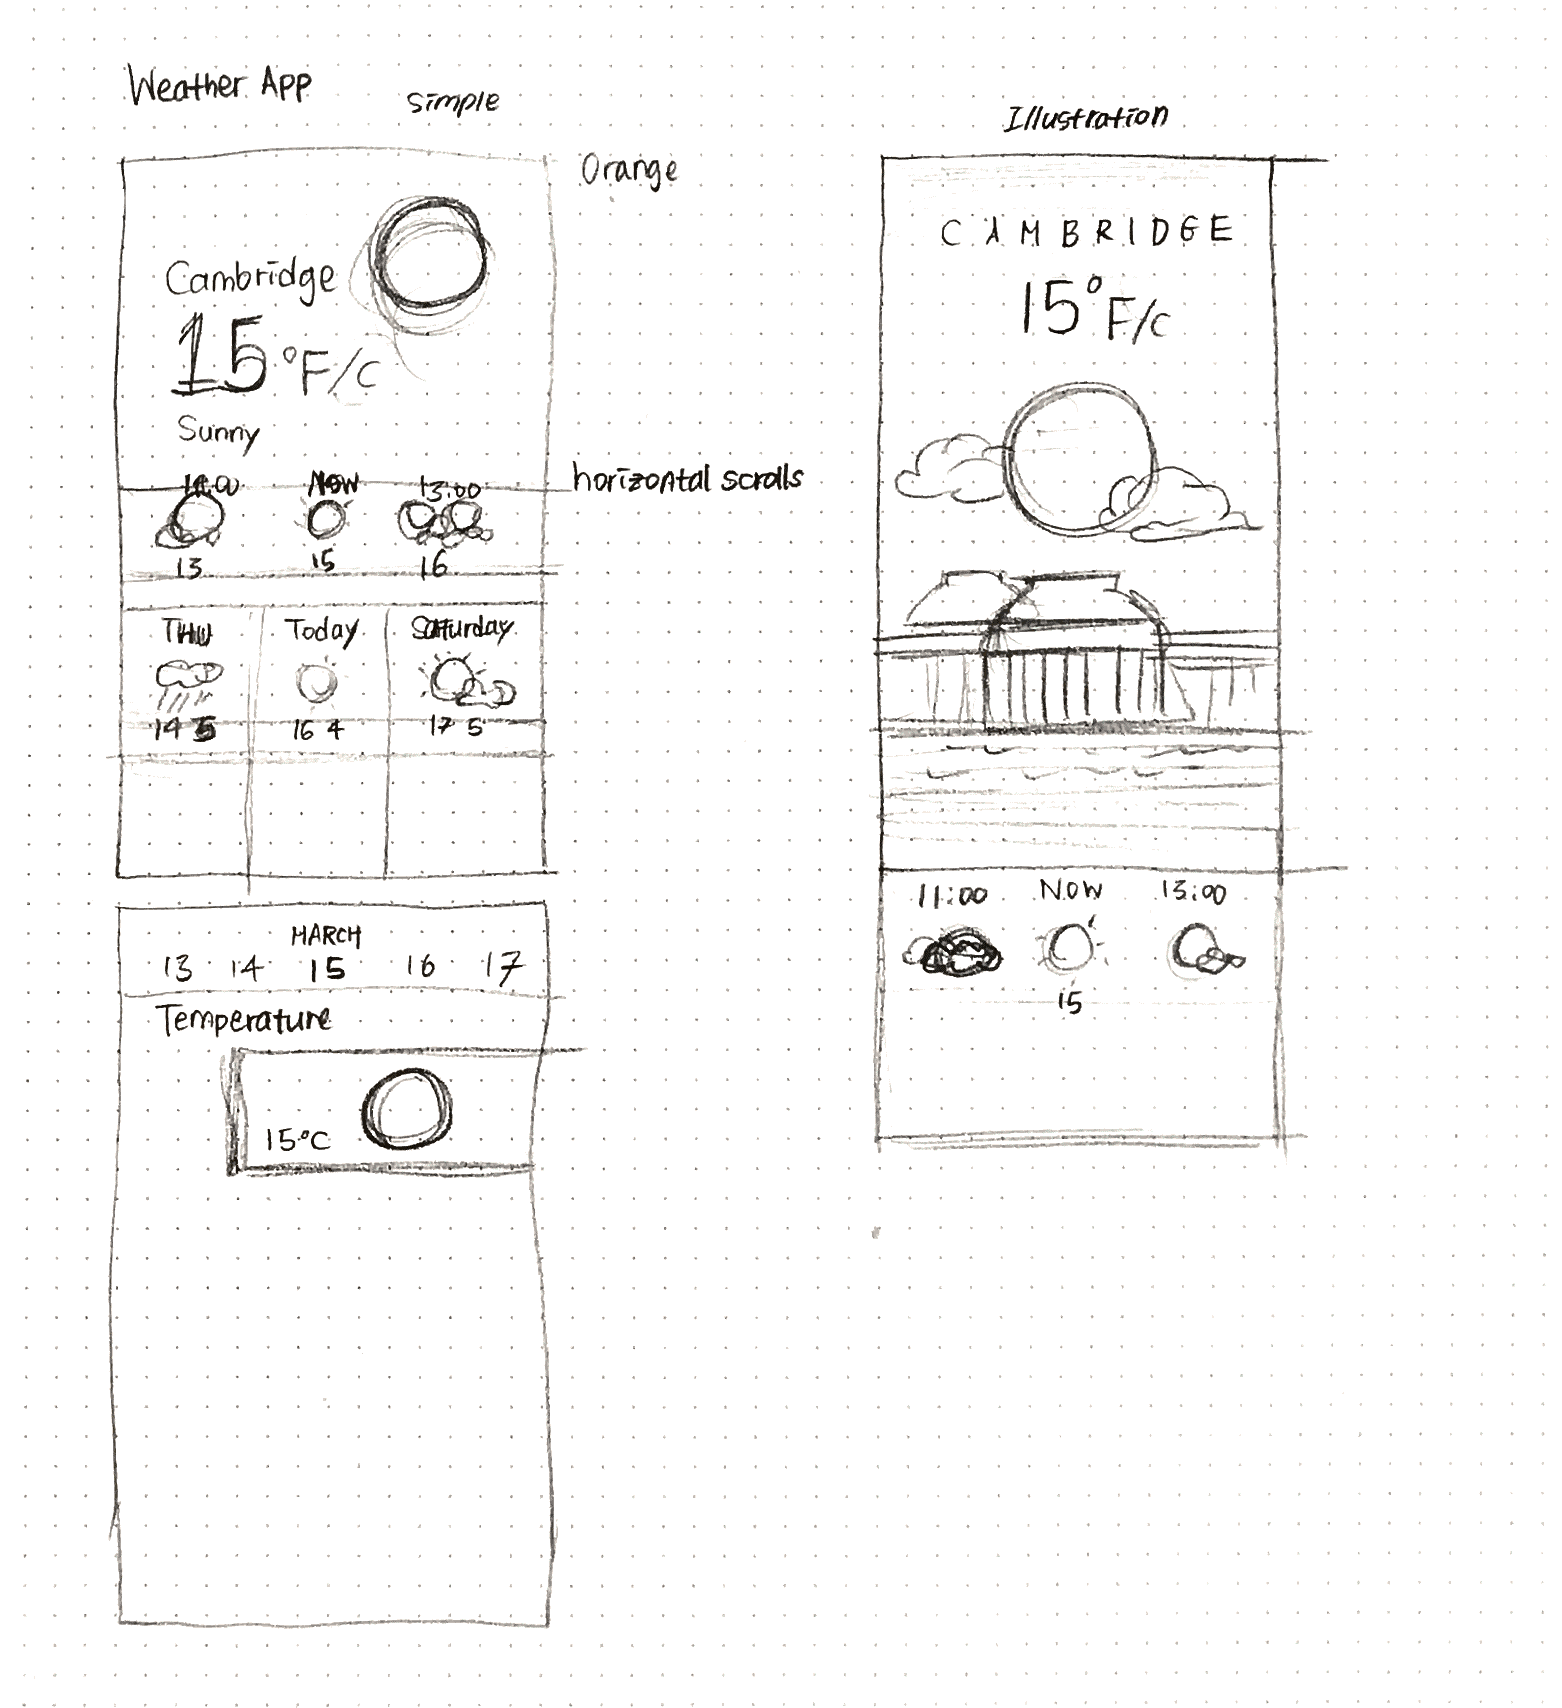 Weather App
Simple
Orange
Cambridge
15 °F/C
Sunny
horizontal scrolls
Now 13:00
13 15 16
THU Today Saturday
14 5 16 4 17 5
MARCH
13 14 15 16 17
Temperature
15°C
Illustration
CAMBRIDGE
15°F/C
11:00 Now 13:00
15